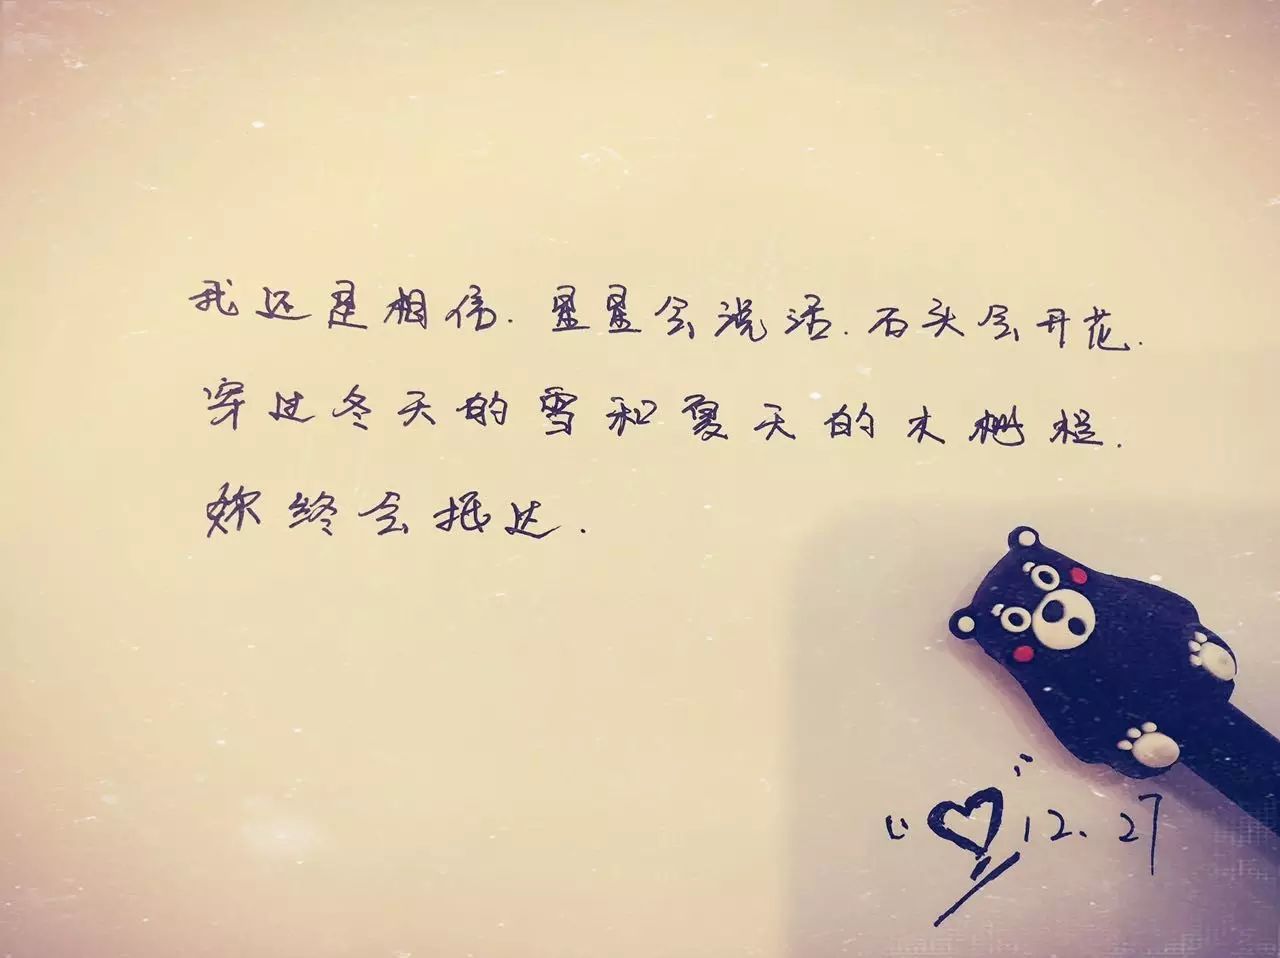 我还是相信.星星会说话.石头会开花.
穿过冬天的雪和夏天的木栅栏.
你终会抵达.
12.27